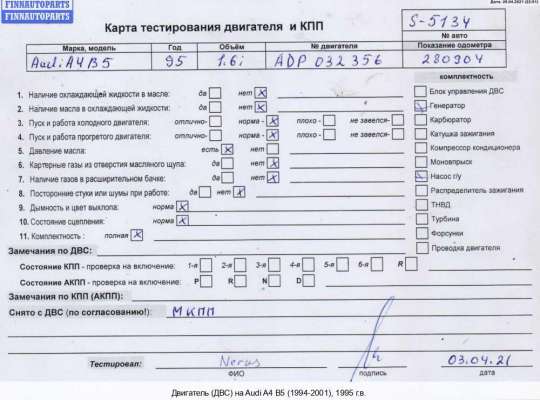 FINNAUTOPARTS
FINNAUTOPARTS
Карта тестирования двигателя и КПП
S-5134
№ авто
Марка, модель Год Объём № двигателя Показание одометра
Audi A4 B5 95 1.6i ADP 032356 280904
комплектность
1. Наличие охлаждающей жидкости в масле: да нет X
2. Наличие масла в охлаждающей жидкости: да нет X
3. Пуск и работа холодного двигателя: отлично- норма - X плохо - не завелся-
4. Пуск и работа прогретого двигателя: отлично- норма - X плохо - не завелся-
5. Давление масла: есть X нет
6. Картерные газы из отверстия масляного щупа: да нет X
7. Наличие газов в расширительном бачке: да нет X
8. Посторонние стуки или шумы при работе: да нет X
9. Дымность и цвет выхлопа: норма X
10. Состояние сцепления: норма X
11. Комплектность : полная X
Блок управления ДВС
Генератор
Карбюратор
Катушка зажигания
Компрессор кондиционера
Моновпрыск
Насос г/у
Распределитель зажигания
ТНВД
Турбина
Форсунки
Проводка двигателя
Замечания по ДВС:
Состояние КПП - проверка на включение: 1-я 2-я 3-я 4-я 5-я 6-я R
Состояние АКПП - проверка на включение: P R N D
Замечания по КПП (АКПП):
Снято с ДВС (по согласованию!): МКПП
Тестировал: 03.04.21
ФИО подпись дата
Двигатель (ДВС) на Audi A4 B5 (1994-2001), 1995 г.в.